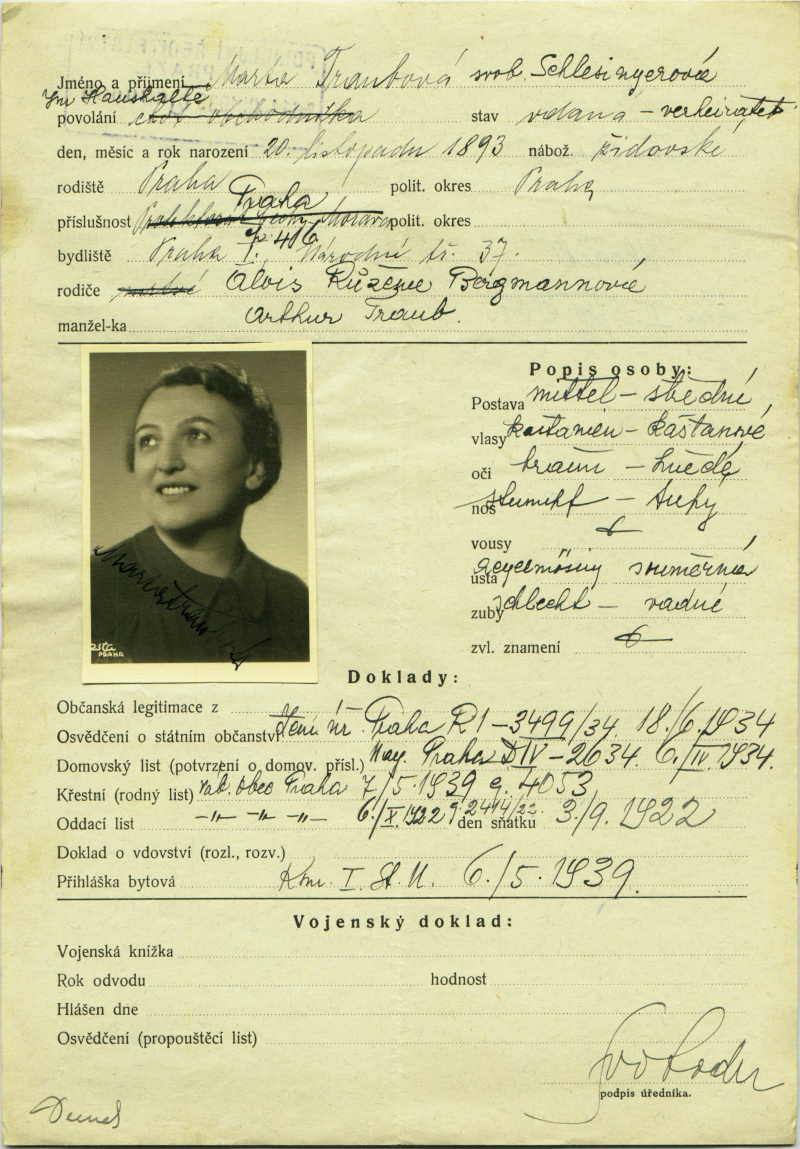 Jméno a příjmení Marie Traubová svob. Schlesingerová
Im Haushalte
povolání choť obchodníka stav vdaná – verheiratet
den, měsíc a rok narození 20. listopadu 1893 nábož. židovské
rodiště Praha polit. okres Praha
Praha
příslušnost Protektorat Čechy Morava polit. okres
čp. 416
bydliště Praha I., Národní tř. 37.
rodiče Alois Růžena Bergmannová
manžel-ka Arthur Traub.
Popis osoby:
Postava mittel – střední
vlasy kastanien – kaštanové
oči braun – hnědé
nos stumpf – tupý
vousy
ústa regelmässig souměrná
zuby schlecht – vadné
zvl. znamení
Marie Traubová
PRAHA
Doklady:
Občanská legitimace z
Osvědčení o státním občanství Zem. úř. Praha R1–3499/34. 18./6.1934
Domovský list (potvrzení o domov. přísl.) Mag. Praha DIV–2634. 6./IV.1934.
Křestní (rodný list) náb. obec Praha 7/5.1939 č. 4053
Oddací list –"– –"– –"– 6./X.1922 č. 2414/22. den sňatku 3./9. 1922
Doklad o vdovství (rozl., rozv.)
Přihláška bytová Kom. I. St. M. 6./5.1939.
Vojenský doklad:
Vojenská knížka
Rok odvodu hodnost
Hlášen dne
Osvědčení (propouštěcí list)
Svoboda
podpis úředníka.